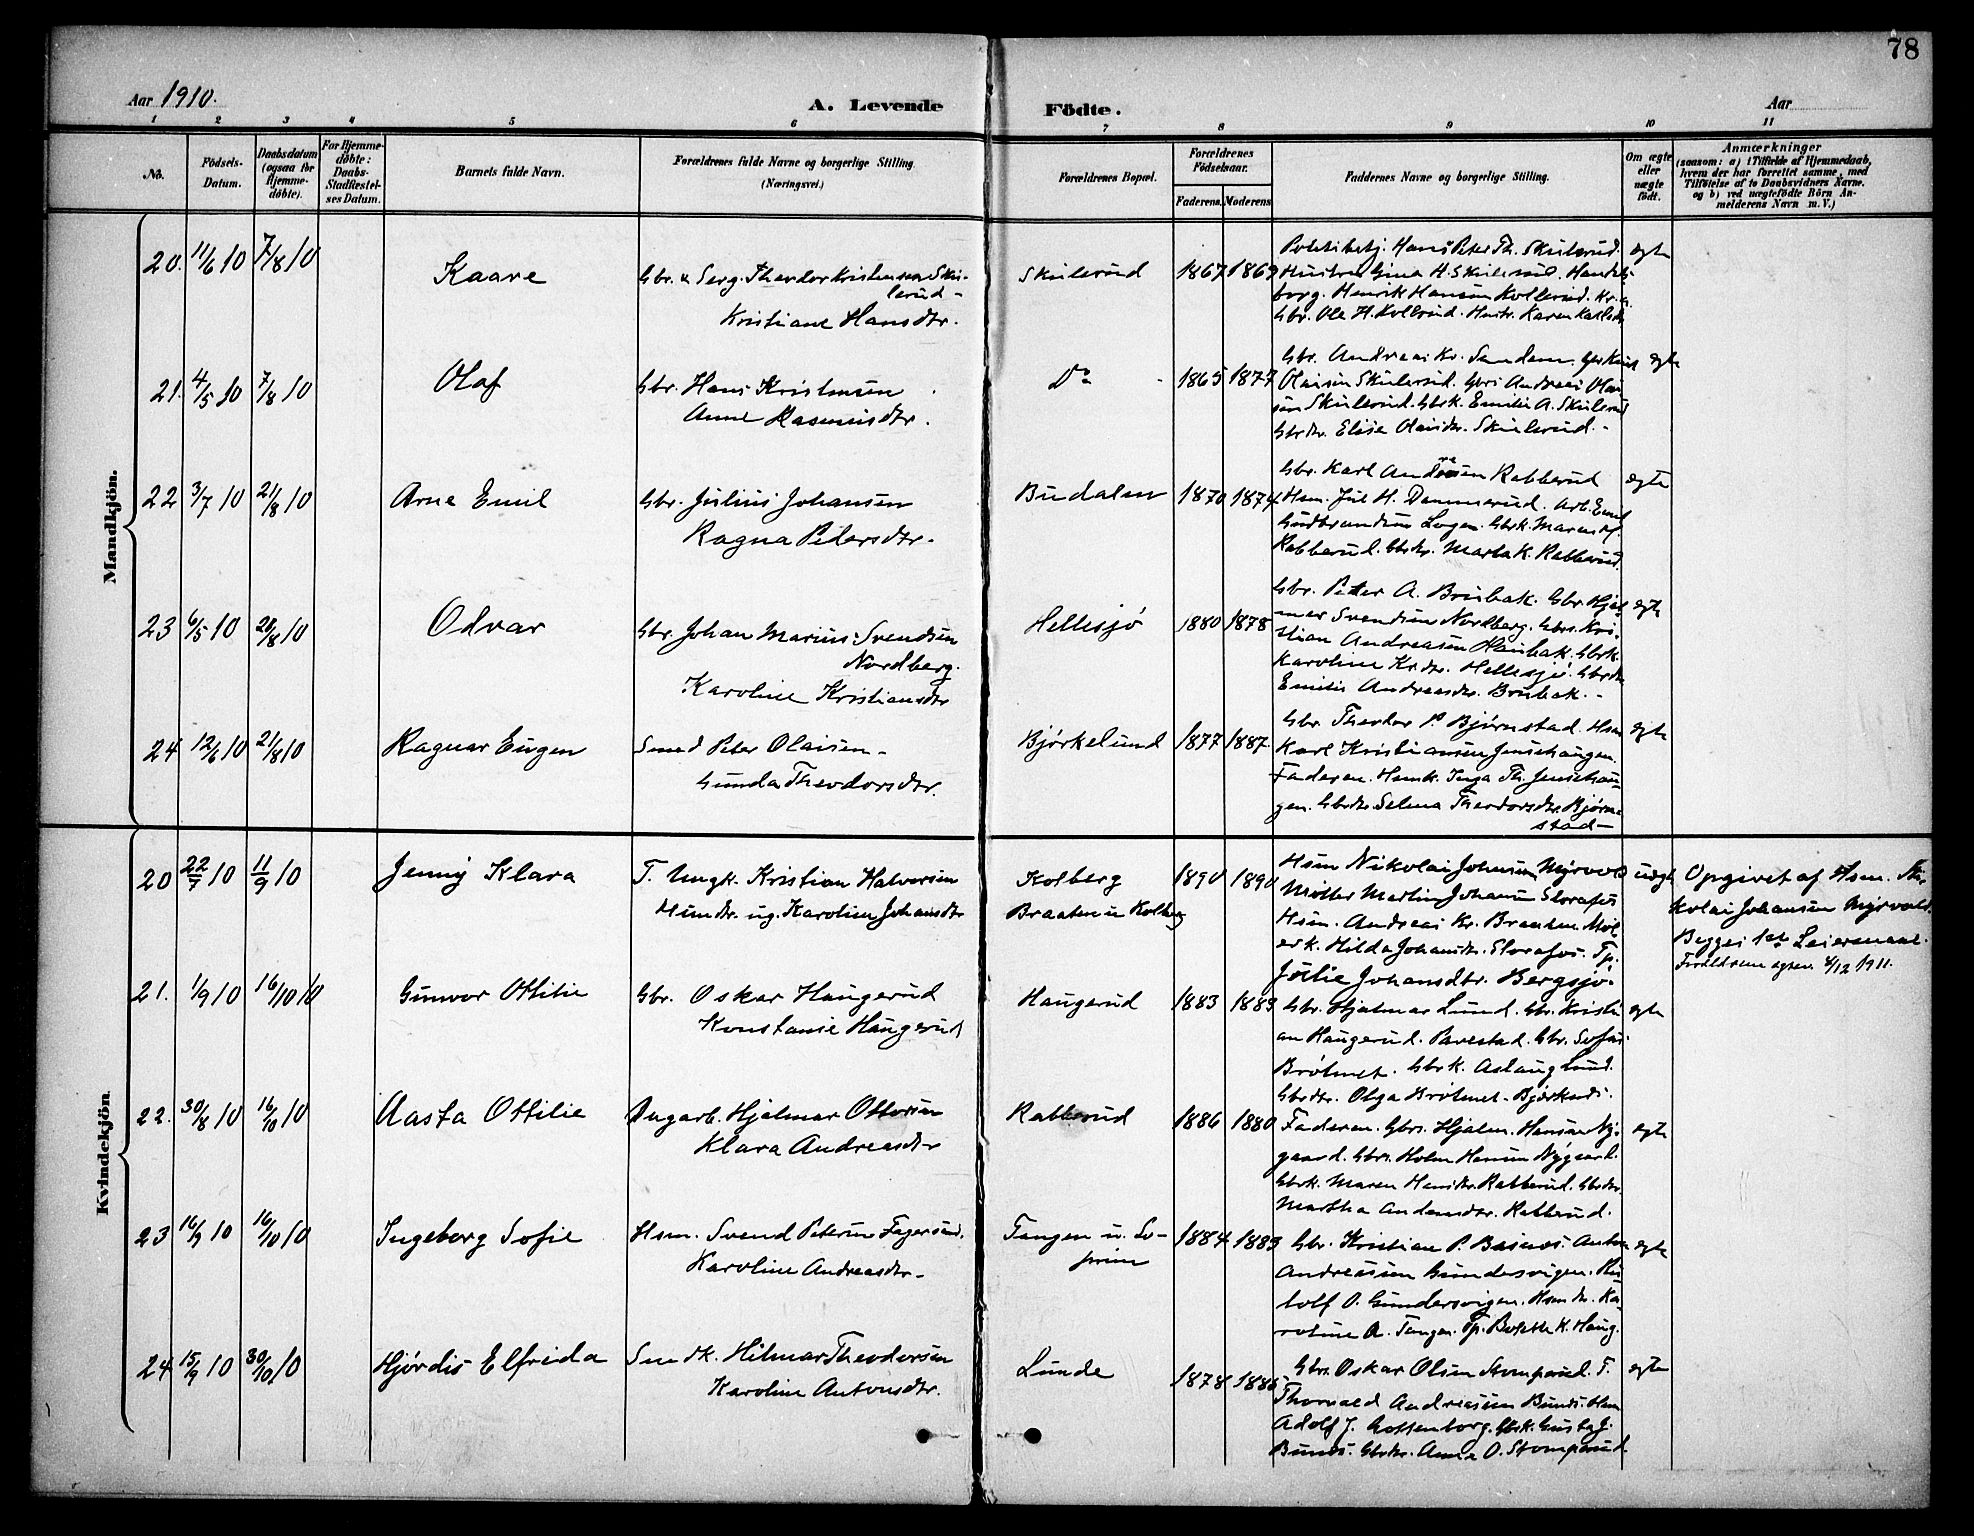 78
Aar 1910.
A. Levende Födte.
Aar
1 2 3 4 5 6 7 8 9 10 11
No.
Födsels-Datum.
Daabsdatum (ogsaa for Hjemme-döbte).
For Hjemme-döbte: Daabs-Stadfæstel-ses Datum.
Barnets fulde Navn.
Forældrenes fulde Navne og borgerlige Stilling. (Næringsvei.)
Forældrenes Bopæl.
Forældrenes Födselsaar.
Faderens. Moderens
Faddernes Navne og borgerlige Stilling.
Om ægte eller uægte födt.
Anmærkninger
(saasom: a) i Tilfælde af Hjemmedaab,
hvem der har forrettet samme, med
Tilföielse af to Daabsvidners Navne.
og b) ved uægtefödte Börn An-
melderens Navn m. V.)
Mandkjön.
20. 11/6 10 7/8 10 Kaare
Gbr. & Serg. Theodor Kristensen Skulerud -
Kristiane Hansdtr.
Skulerud 1867 1869
Hans Peter Th. Skulerud.
Hustru Gina H. Skulerud.
Henrik Hansen Kollerud. Kr.a.
Gbr. Ole H. Kollerud. Hustr. Karen
egte
21. 4/5 10 7/8 10 Olaf
Gbr. Hans Kristensen
Anne Rasmusdtr.
Do 1865 1877
Gbr. Andreas Kr. Sandem,
Olaisen Skulerud. Gbrs. Andreas Olai-
sen Skulerud. Gbrk. Emilie A. Skulerud
Gbrdtr. Elise Olaisdtr. Skulerud. -
egte
22 3/7 10 21/8 10 Arne Emil
Gbr. Julius Johansen
Ragna Petersdtr.
Budalen 1870 1874
Gbr. Karl Andresen Rabberud
Hsm. Jul. H. Dammerud. Arb. Emil
Gudbrandsen Gbrk. Maren
Rabberud. Gbrdtr. Marta K. Rabberud.
egte
23 6/5 10 28/8 10 Odvar
Gbr. Johan Marius Svendsen
Nordberg.
Karoline Kristiansdtr
Hellesjø 1880 1878
Gbr. Peter A. Brubak. Gbr. Hjal-
mar Svendsen Nordberg. Gbrs. Kri-
stian Andreasen Haubak. Gbrk.
Karoline Kr.dtr. Hellesjø. Gbrdtr.
Emilie Andreasdtr. Brubak. -
egte
24 12/6 10 21/8 10 Ragnar Eugen
Smed Peter Olaisen -
Gunda Theodorsdtr.
Bjørkelund 1877 1887
Gbr. Theodor P. Bjørnstad. Hsm
Karl Kristiansen Jensehaugen.
Faderen. Hsmk. Inga Th. Jensehau-
gen. Gbrdtr. Selma Theodorsdtr. Bjørn-
stad -
egte
Kvindekjön.
20 22/7 10 11/9 10 Jenny Klara
T. Ungk. Kristian Halvorsen
Hsmdtr. ug. Karoline Johansdtr
Kolberg
Braaten u Kolberg
1890 1890
Hsm Nikolai Johansen Myrvold
Møller Martin Johansen Storafos
Hsm. Andreas Kr. Braaten. Møl-
lerk. Hilda Johansdtr. Storafos. Tp.
Julie Johansdtr. Bergsjø.
uægte
Opgivet af Hsm. Ni-
kolai Johansen Myrvold.
Begges 1ste Leiermaal.
Forældrene egtev. 4/12 1911.
21. 1/9 10 16/10 10 Gunvor Ottilie
Gbr. Oskar Haugerud
Konstanse Haugerud
Haugerud 1883 1883
Gbr. Hjalmar Lund. Gbr. Kristi-
an Haugerud. Gbr. Sofus
Brøtmet. Gbrk. Aslaug Lund.
Gbrdtr. Olga Brøtmet -
egte
22. 30/8 10 16/10 10 Aasta Ottilie
Dagarb. Hjalmar Ottersen
Klara Andreasdtr
Rabberud 1886 1880
Faderen. Gbrs. Hjalm. Hansen Ny-
gaard. Gbrs. Holm Hansen Nygaard.
Gbrk. Maren Hansdtr. Rabberud. Gbrdtr.
Martha Andersdtr. Rabberud.
egte
23 16/9 10 16/10 10 Ingeborg Sofie
Hsm. Svend Petersen Fagersand.
Karoline Andreasdtr. -
Tangen u.
1884 1883
Gbr. Kristian P. Anton
Andreassen Gundersvigen. Ru-
dolf O. Gundersvigen. Hsmdtr. Ka-
roline A. Tangen. Tp. Bolette K. Haug.
egte
24 15/9 10 30/10 10 Hjørdis Elfrida
Smedk. Hilmar Theodorsen
Karoline Antonsdtr.
Lunde 1878 1885
Gbrs. Oskar Olsen Stomperud. T.
Thorvald Andreasen Hsm
Adolf J. Gottenborg. Gbrk. Gusta J.
Gbrdtr. Anna O. Stomperud.
egte